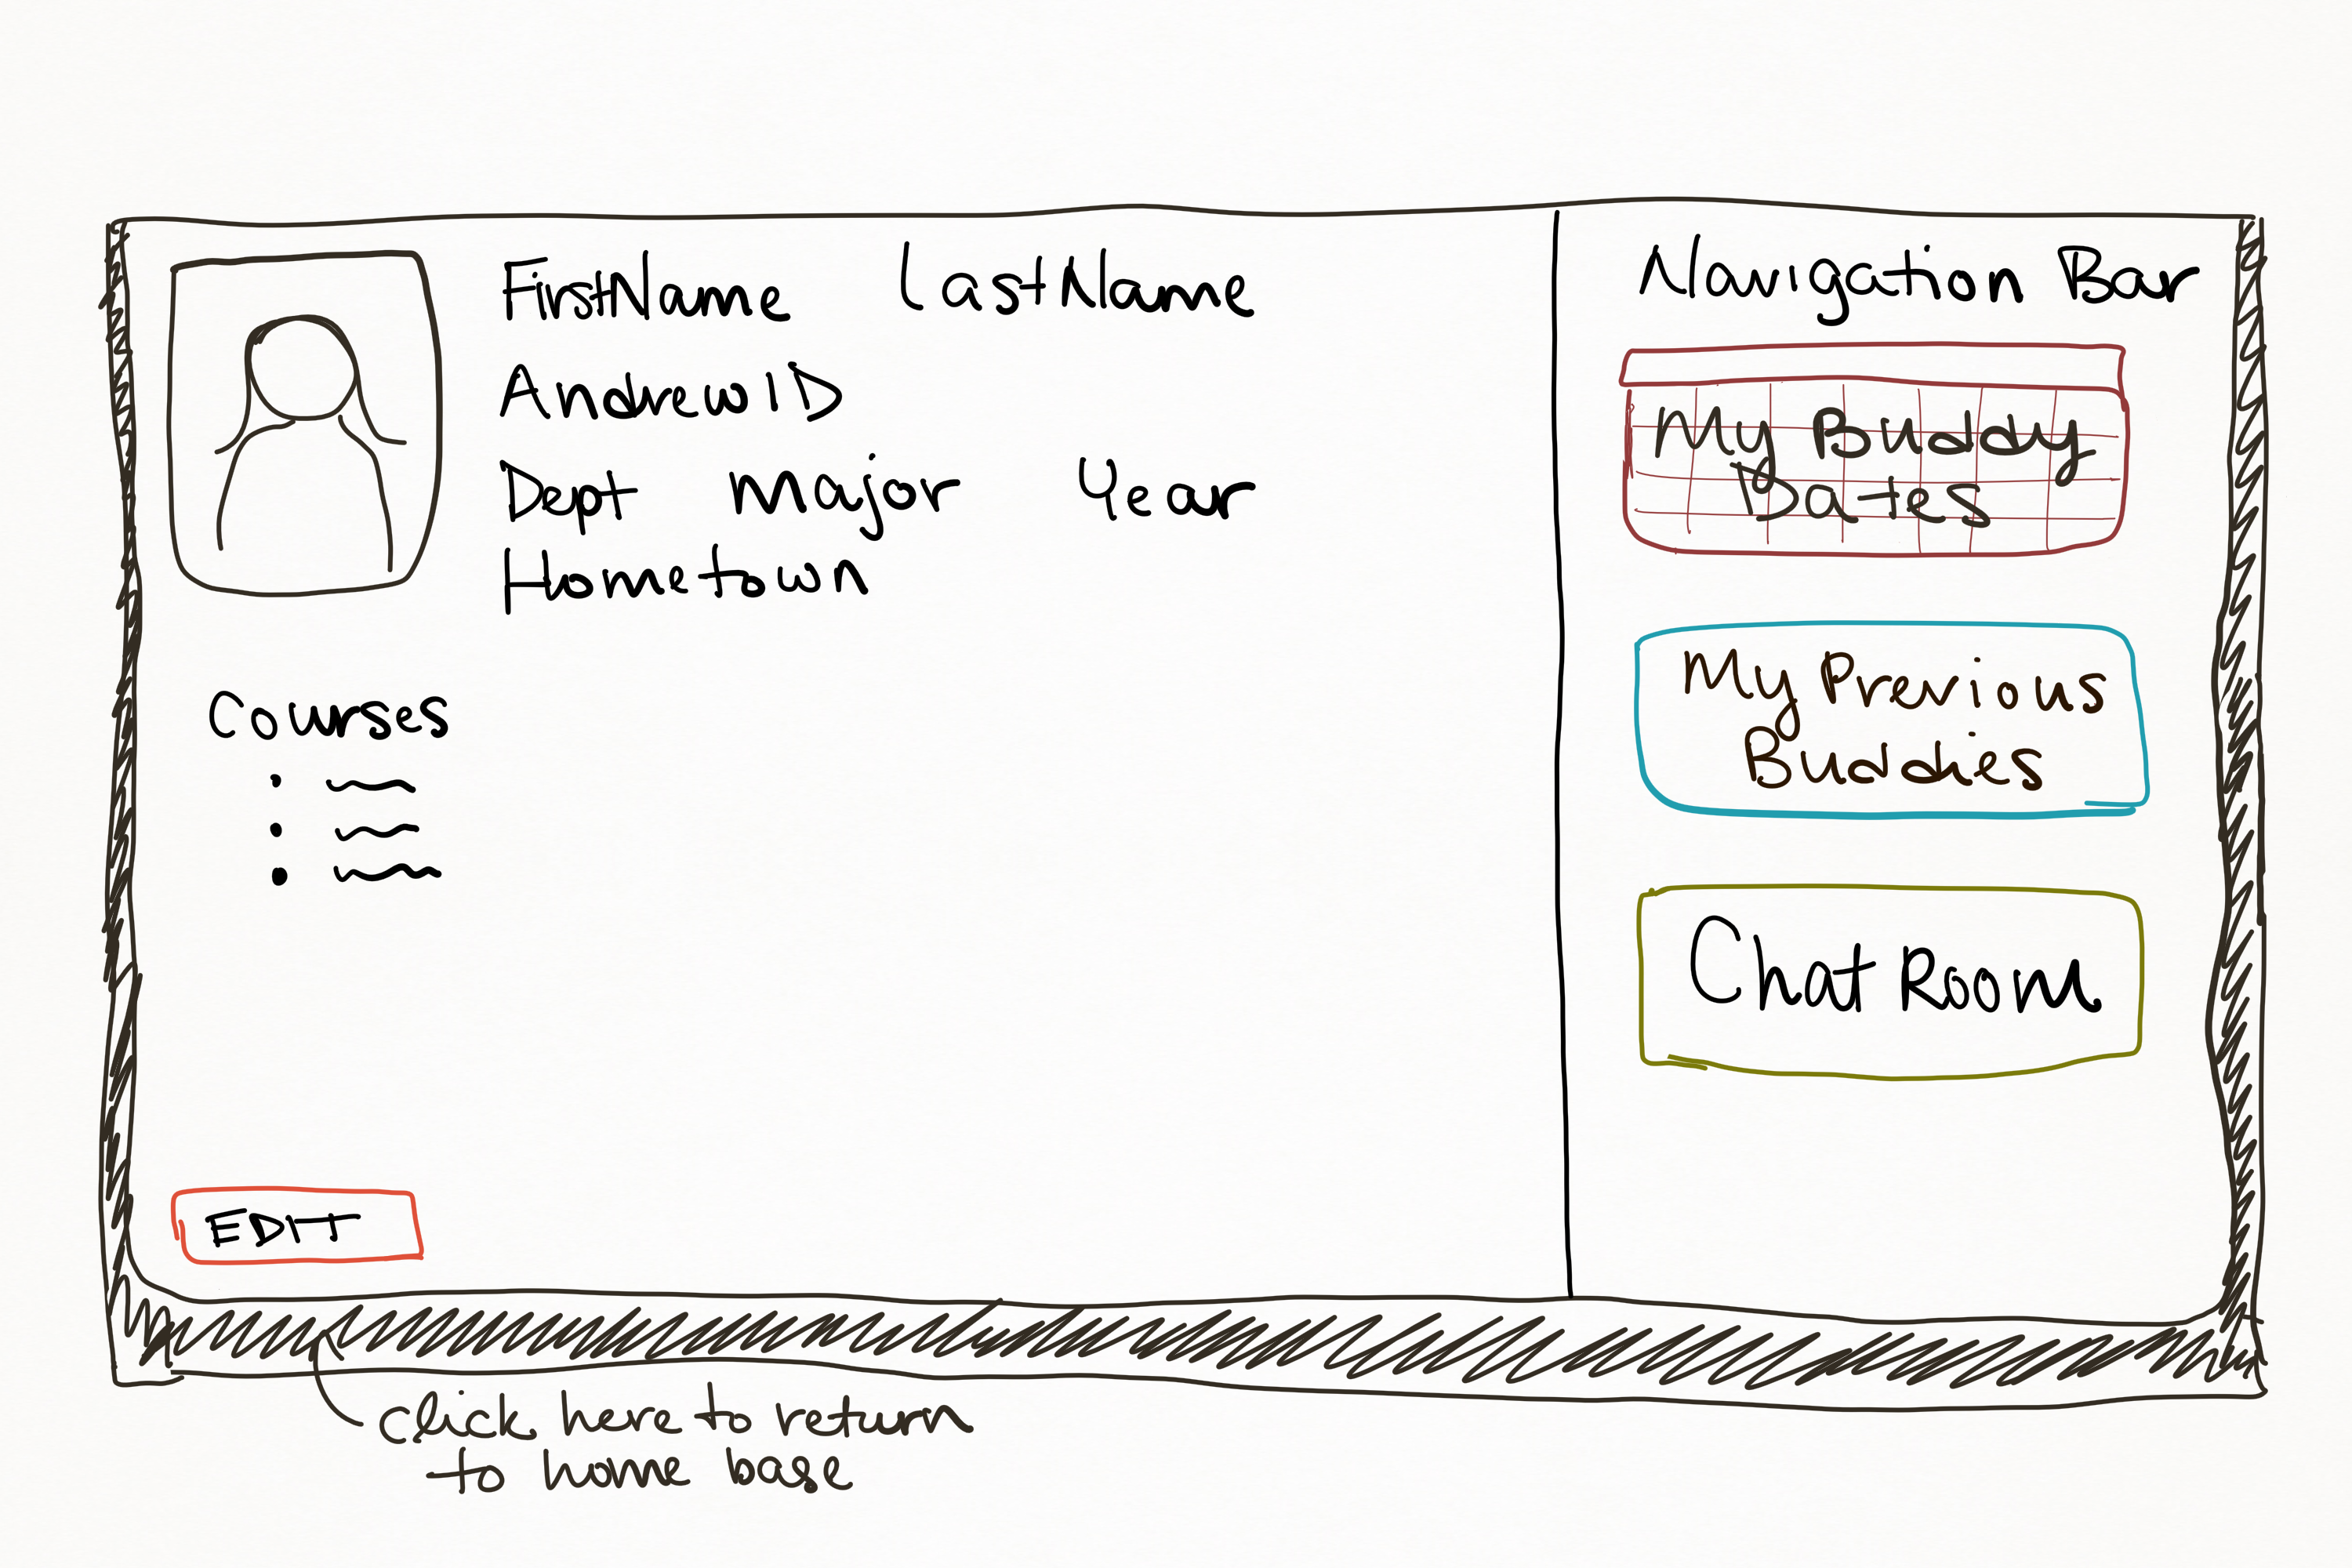 FirstName LastName
AndrewID
Dept Major Year
Hometown
Courses
EDIT
Navigation Bar
My Buddy
Dates
My Previous
Buddies
Chat Room
click here to return
to home base